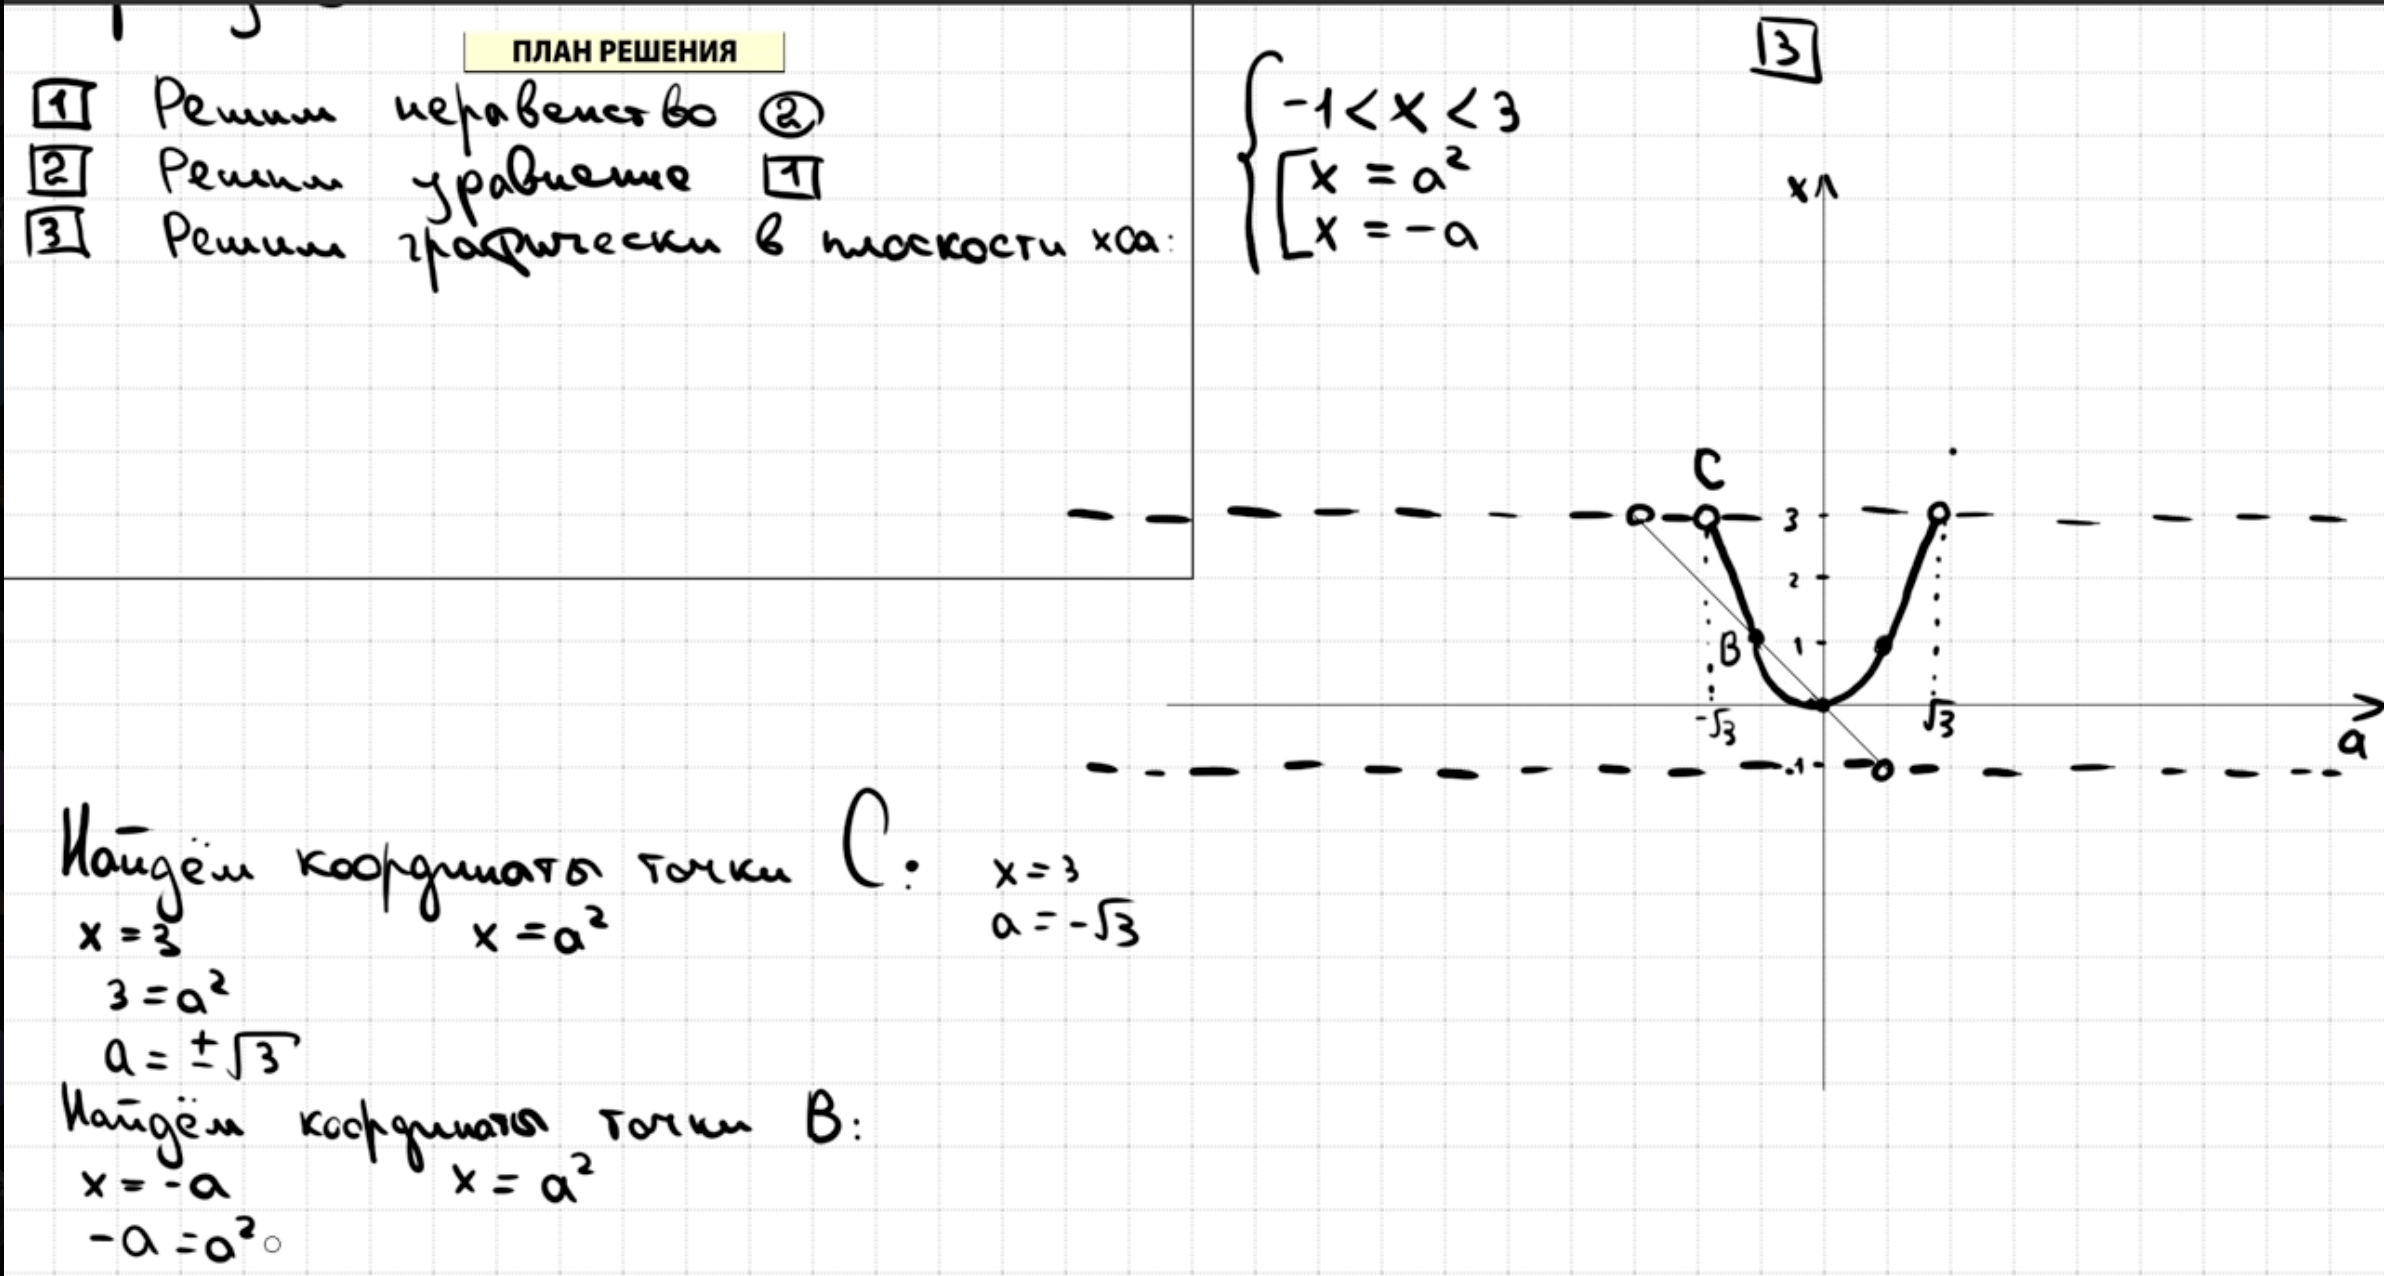 ПЛАН РЕШЕНИЯ
1 Решим неравенство 2
2 Решим уравнение 1
3 Решим графически в плоскости xOa:
3
-1 < x < 3
x = a²
x = -a
x
C
3
2
B 1
-√3 √3
a
-1
Найдём координаты точки C: x = 3
a = -√3
x = 3 x = a²
3 = a²
a = ±√3
Найдём координаты точки B:
x = -a x = a²
-a = a²